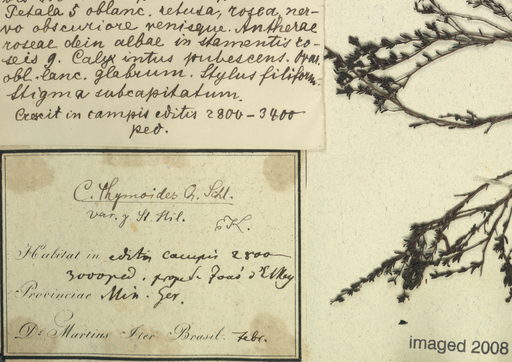 Petala 5 oblanc. retusa, rosea, ner-
vo obscuriore venisque. Antherae
roseae dein albae in stamentis co-
seis 9. Calyx intus pubescens. Ovar.
obl. lanc. glabrum. Stylus filiform.
Stigma subcapitatum.
Crescit in campis editis 2800-3400
ped.
C. thymoides Ch. Schl.
var. γ St. Hil.
Habitat in editis campis 2800
3000 ped. prope
Provinciae Min. Ger.
Dr Martius Iter Brasil. Febr.
imaged 2008